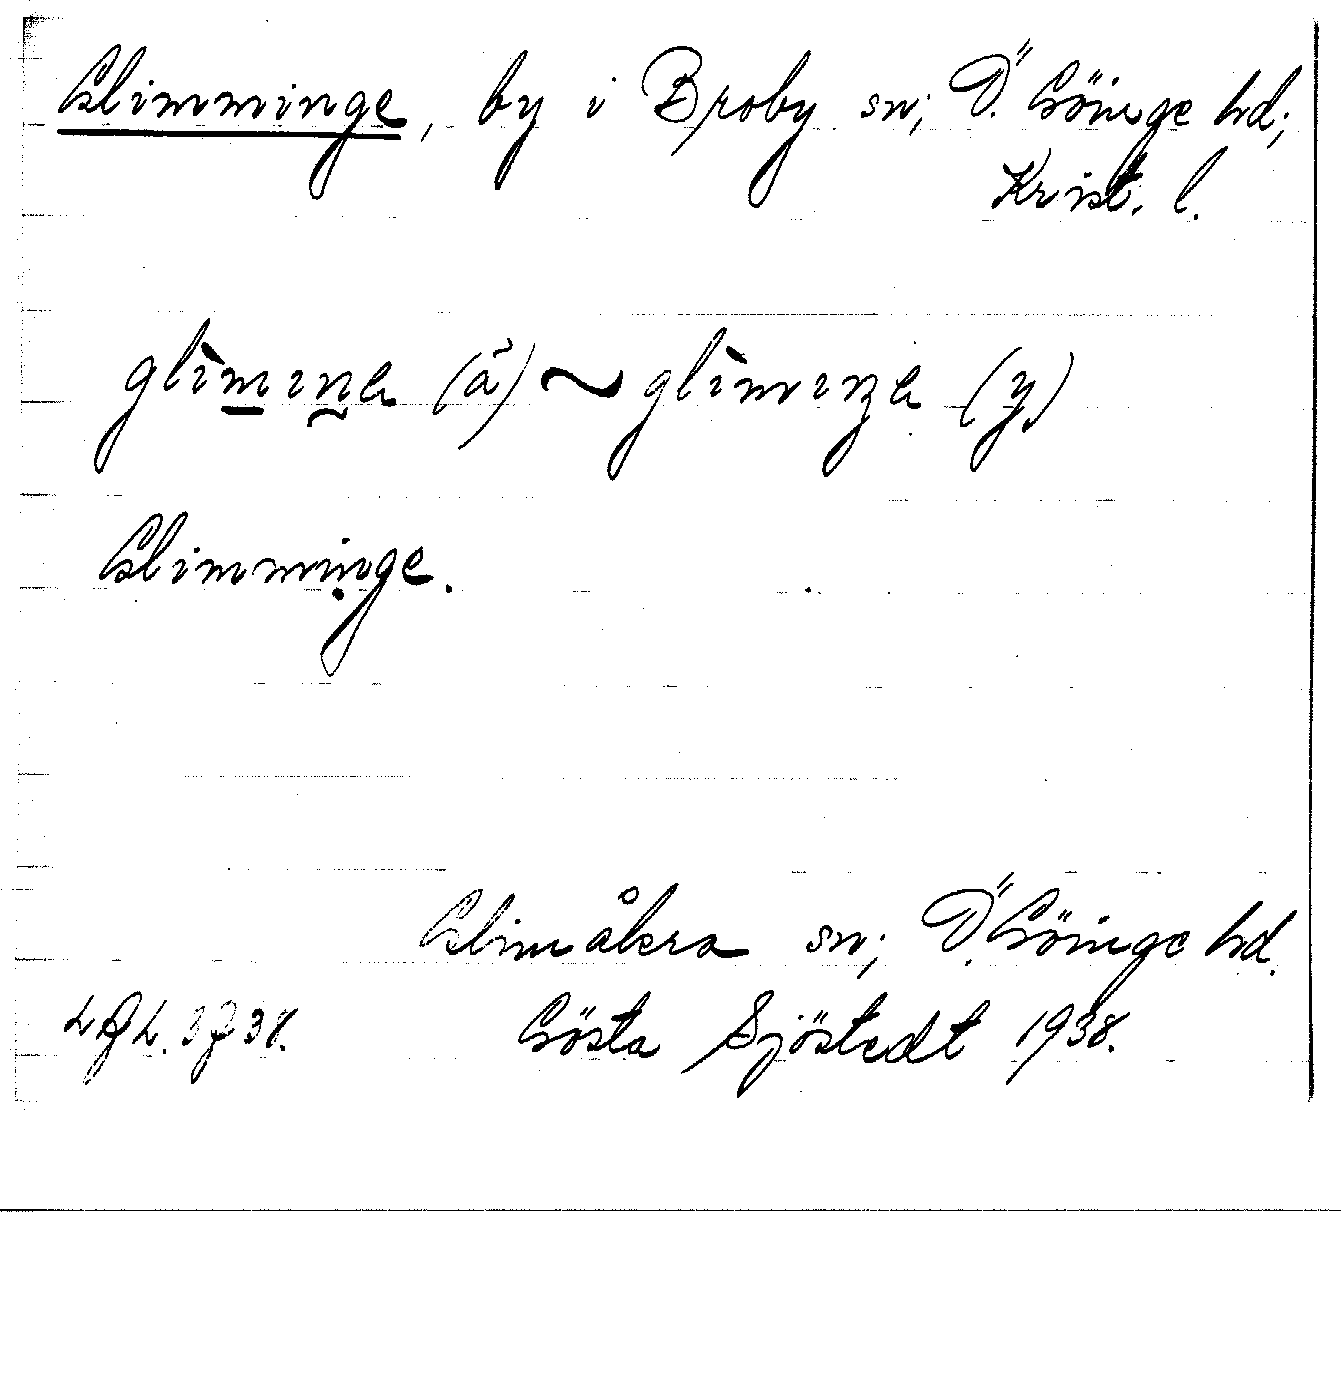 Glimminge, by i Broby sn; Ö. Göinge hd;
Krist. l.
glìmiŋa (ä) ~ glìmiŋa (y)
Glimminge.
Glimåkra sn; Ö. Göinge hd.
Gösta Sjöstedt 1938.